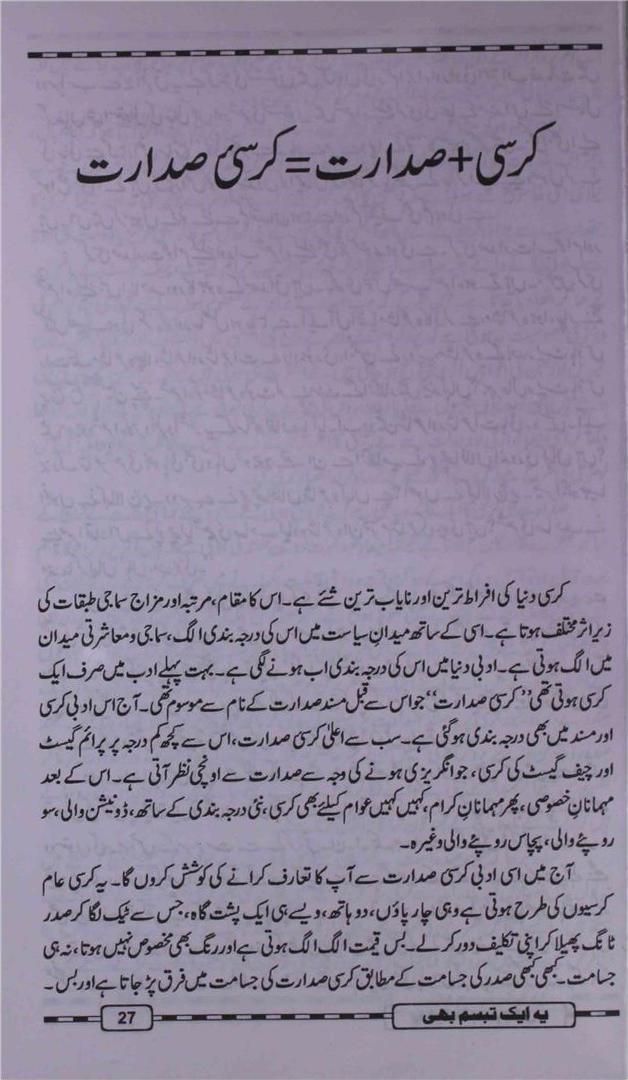 کرسی + صدارت = کرسیٔ صدارت
کرسی دنیا کی افراط ترین اور نایاب ترین شئے ہے۔ اس کا مقام، مرتبہ اور مزاج سماجی طبقات کی
زیر اثر مختلف ہوتا ہے۔ اسی کے ساتھ میدانِ سیاست میں اس کی درجہ بندی الگ، سماجی و معاشرتی میدان
میں الگ ہوتی ہے۔ ادبی دنیا میں اس کی درجہ بندی اب ہونے لگی ہے۔ بہت پہلے ادب میں صرف ایک
کرسی ہوتی تھی ’’کرسیٔ صدارت‘‘ جو اس سے قبل مسند صدارت کے نام سے موسوم تھی۔ آج اس ادبی کرسی
اور مسند میں بھی درجہ بندی ہو گئی ہے۔ سب سے اعلیٰ کرسیٔ صدارت، اس سے کچھ کم درجہ پر پرائم گیسٹ
اور چیف گیسٹ کی کرسی، جو انگریزی ہونے کی وجہ سے صدارت سے اونچی نظر آتی ہے۔ اس کے بعد
مہمانانِ خصوصی، پھر مہمانانِ کرام، کہیں کہیں عوام کیلئے بھی کرسی، نئی درجہ بندی کے ساتھ، ڈونیشن والی، سو
روپئے والی، پچاس روپئے والی وغیرہ۔
آج میں اسی ادبی کرسیٔ صدارت سے آپ کا تعارف کرانے کی کوشش کروں گا۔ یہ کرسی عام
کرسیوں کی طرح ہوتی ہے وہی چار پاؤں، دو ہاتھ، ویسے ہی ایک پشت گاہ، جس سے ٹیک لگا کر صدر
ٹانگ پھیلا کر اپنی تکلیف دور کر لے۔ بس قیمت الگ الگ ہوتی ہے اور رنگ بھی مخصوص نہیں ہوتا، نہ ہی
جسامت۔ کبھی کبھی صدر کی جسامت کے مطابق کرسی صدارت کی جسامت میں فرق پڑ جاتا ہے اور بس۔
یہ ایک تبسم بھی
27